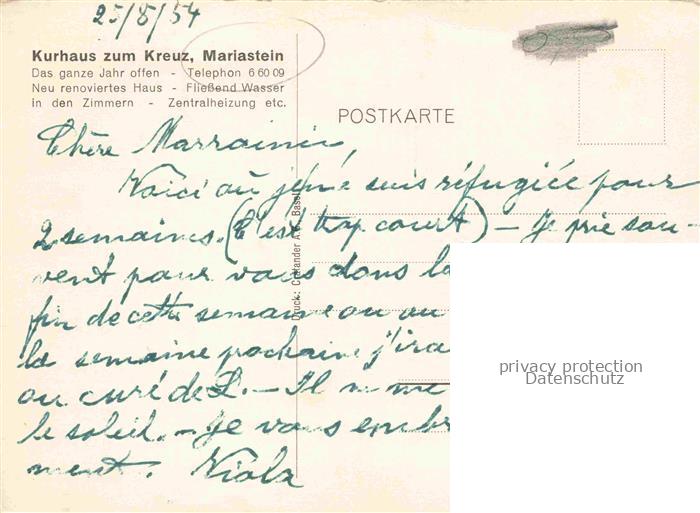 25/8/54
Kurhaus zum Kreuz, Mariastein
Das ganze Jahr offen - Telephon 6 60 09
Neu renoviertes Haus - Fließend Wasser
in den Zimmern - Zentralheizung etc.
POSTKARTE
Chère Marrainie,
Voici où je me suis réfugiée pour
2 semaines. (C'est trop court) - Je prie sou-
vent pour vous dans la
fin de cette semaine ou au
la semaine prochaine j'ira
au curé de L. - Il n me
le soleil. - Je vous embr
ment. Viola
Druck: Cratander A.G. Basel
privacy protection
Datenschutz